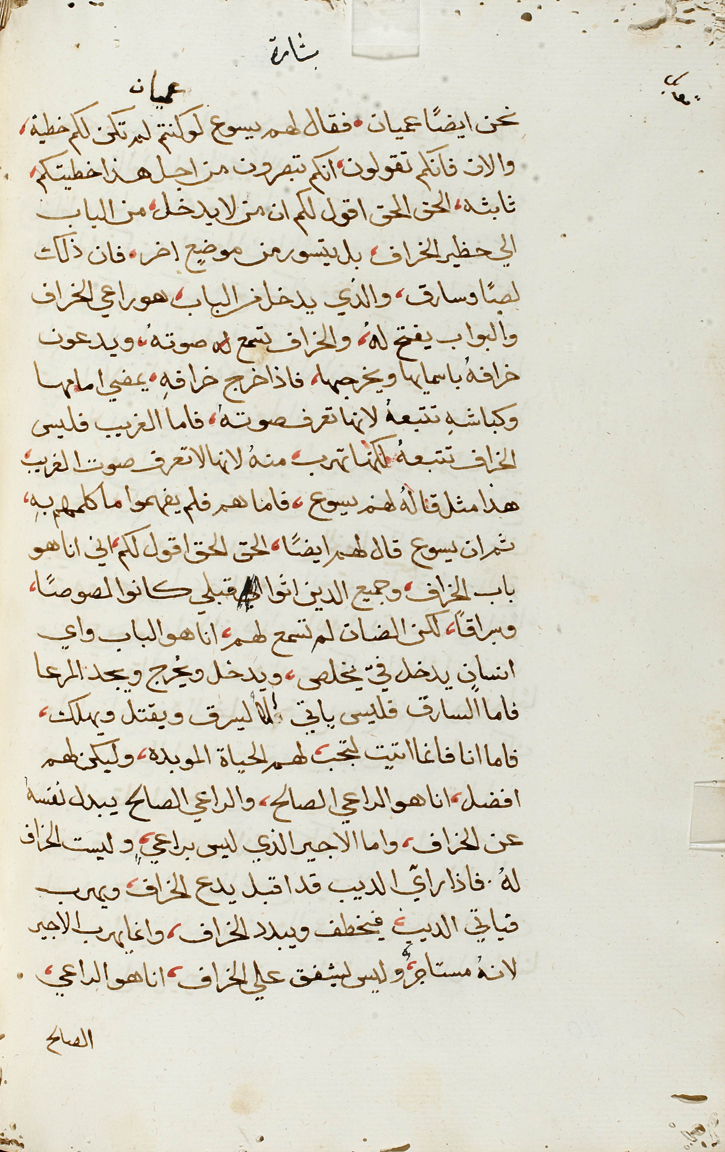 بشارة
عميان
نحن ايضًا عميان، فقال لهم يسوع لو كنتم لم تكن لكم خطية،
والان فانكم تقولون، انكم تبصرون من اجل هذا خطيتكم،
ثابثه، الحق الحق اقول لكم ان من لا يدخل، من الباب
الي حظير الخراف، بل يتسور من موضع اخر، فان ذلك
لصًا وسارق، والذي يدخل من الباب، هو راعي الخراف
والبواب يفتح لهُ، والخراف تسمع له صوتهُ، ويدعون
خرافهُ باسمايها ويخرجها، فاذا خرج خرافهِ، يمضي امامها
وكباشهِ تتبعهُ لانها تعرف صوتهُ، فاما الغريب فليس
الخراف تتبعهُ لكنها تهرب، منهُ لانها لا تعرف صوت الغريب،
هذا مثل قالهُ لهم يسوع، فاما هم فلم يفهموا ما كلمهم بهِ،
ثم ان يسوع قال لهم ايضًا، الحق الحق اقول لكم، اني انا هو
باب الخراف، وجميع الدين اتوا قبلي كانوا لصوصًا،
وسراقًا، لكن الضان لم تسمع لهم، انا هو الباب واي
انسانٍ يدخل فيّ يخلص، ويدخل ويخرج ويجد المرعا
فاما السارق فليس ياتي الا ليسرق ويقتل ويهلك،
فاما انا فانما اتيت لتجب لهم الحياة الموبده، وليكن لهم
افضل، انا هو الراعي الصالح، والراعي الصالح يبدل نفسهُ
عن الخراف، واما الاجير الذي ليس براعيٍ، وليست الخراف
لهُ. فاذا رايّ الديب قد اقبل يدع الخراف، ويهرب
فياتي الديب، فيخطف ويبدد الخراف، وانما يهرب الاجير
لانهُ مستاجرٌ، وليس ليشفق علي الخراف، انا هو الراعي،
الصالح